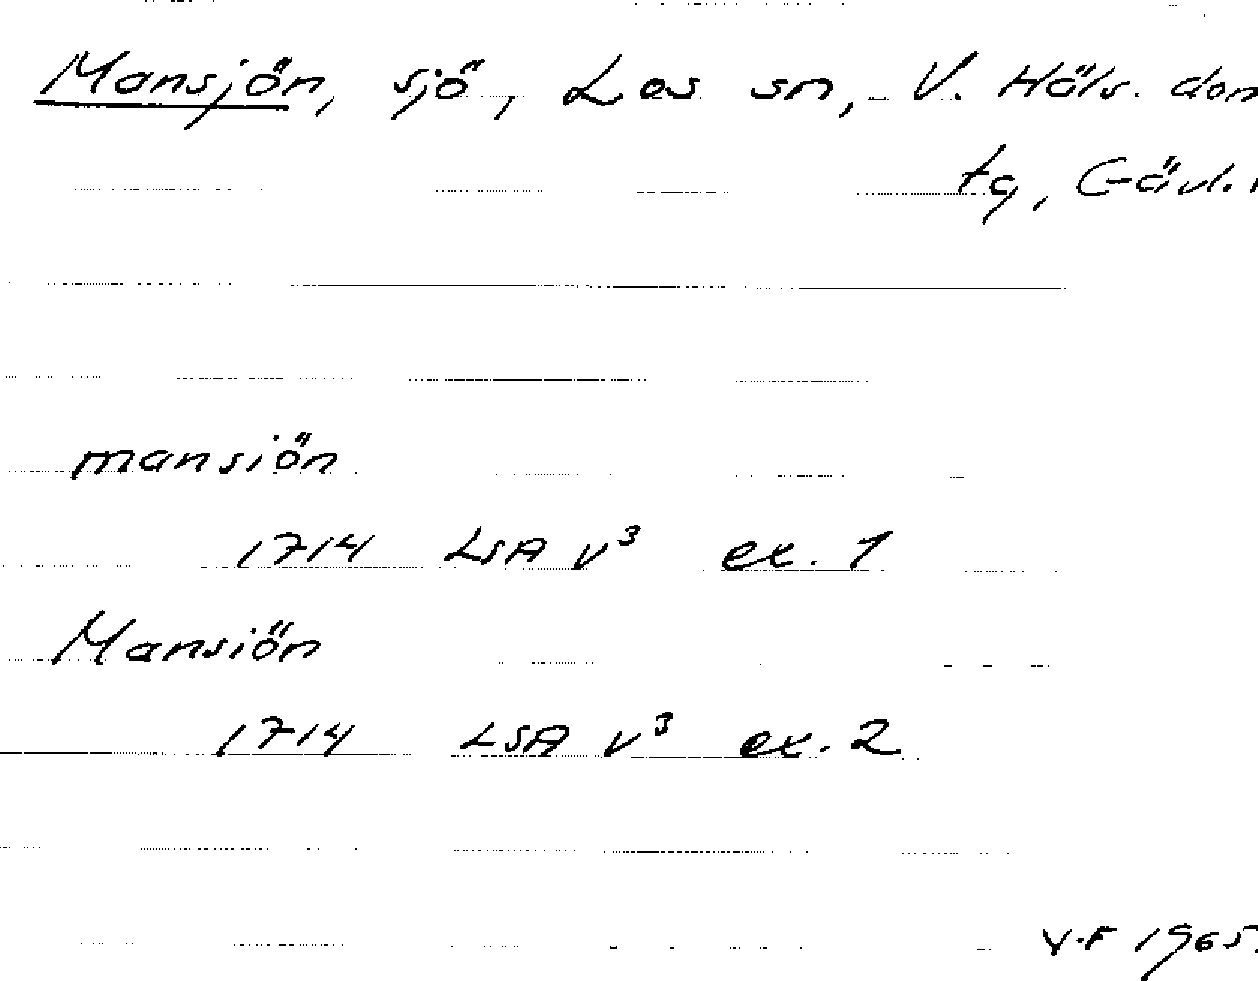 Mansjön, sjö, Los sn, V. Häls. dom
tg, Gävl.
mansiön
1714 LSA V³ ex. 1
Mansiön
1714 LSA V³ ex. 2
V.F 1965.